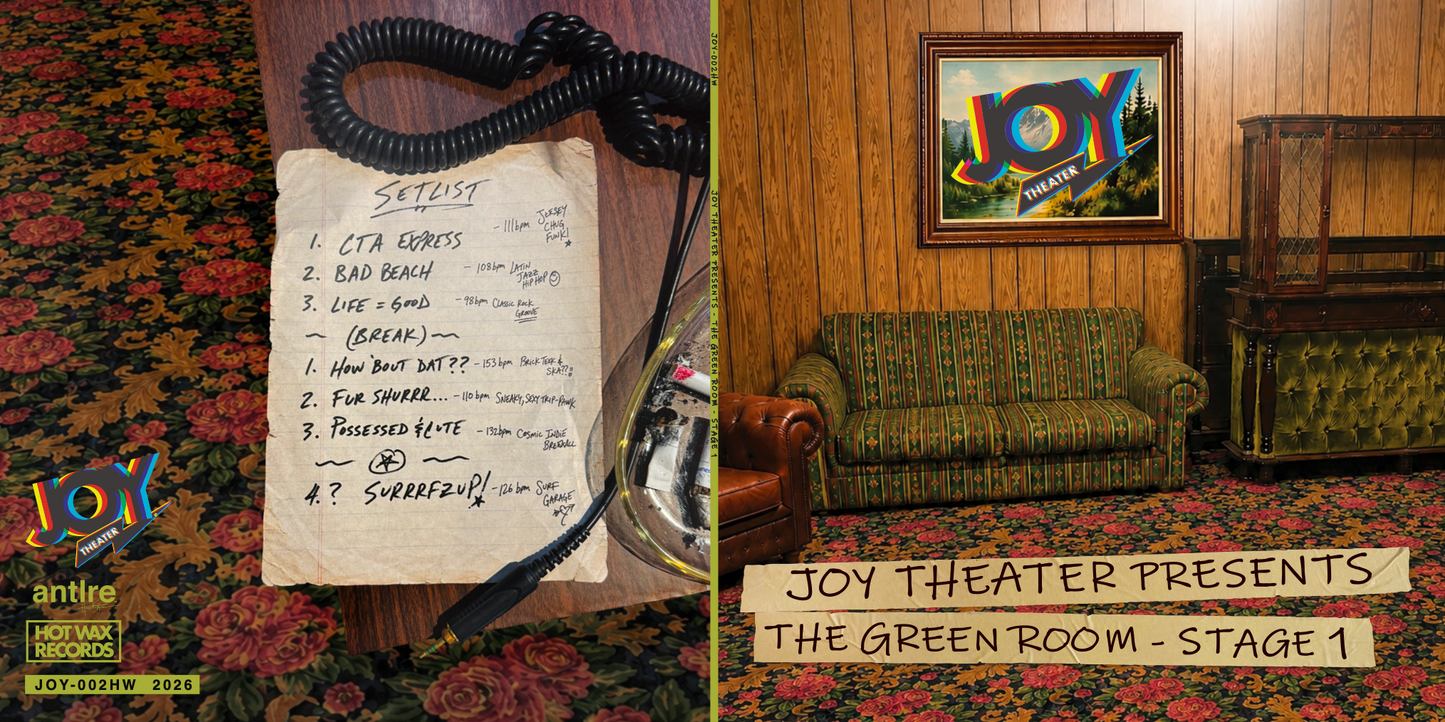 SETLIST
1. CTA EXPRESS - 111bpm JERSEY
CHUG
FUNK!
2. BAD BEACH - 108bpm LATIN
JAZZ
HIP HOP
3. LIFE = GOOD - 98bpm CLASSIC ROCK
GROOVE
~ (BREAK) ~
1. HOW 'BOUT DAT?? - 153bpm BRICK TEEK &
SKA??!!
2. FUR SHURRR... - 110bpm SNEAKY, SEXY TRIP-FUNK
3. POSSESSED & CUTE - 132bpm COSMIC INDIE
4. ? SURRRFZUP! - 126bpm SURF
GARAGE
JOY
THEATER
antIre
HOT WAX
RECORDS
JOY-002HW 2026
JOY-002HW
JOY THEATER PRESENTS - THE GREEN ROOM - STAGE 1
JOY
THEATER
JOY THEATER PRESENTS
THE GREEN ROOM - STAGE 1